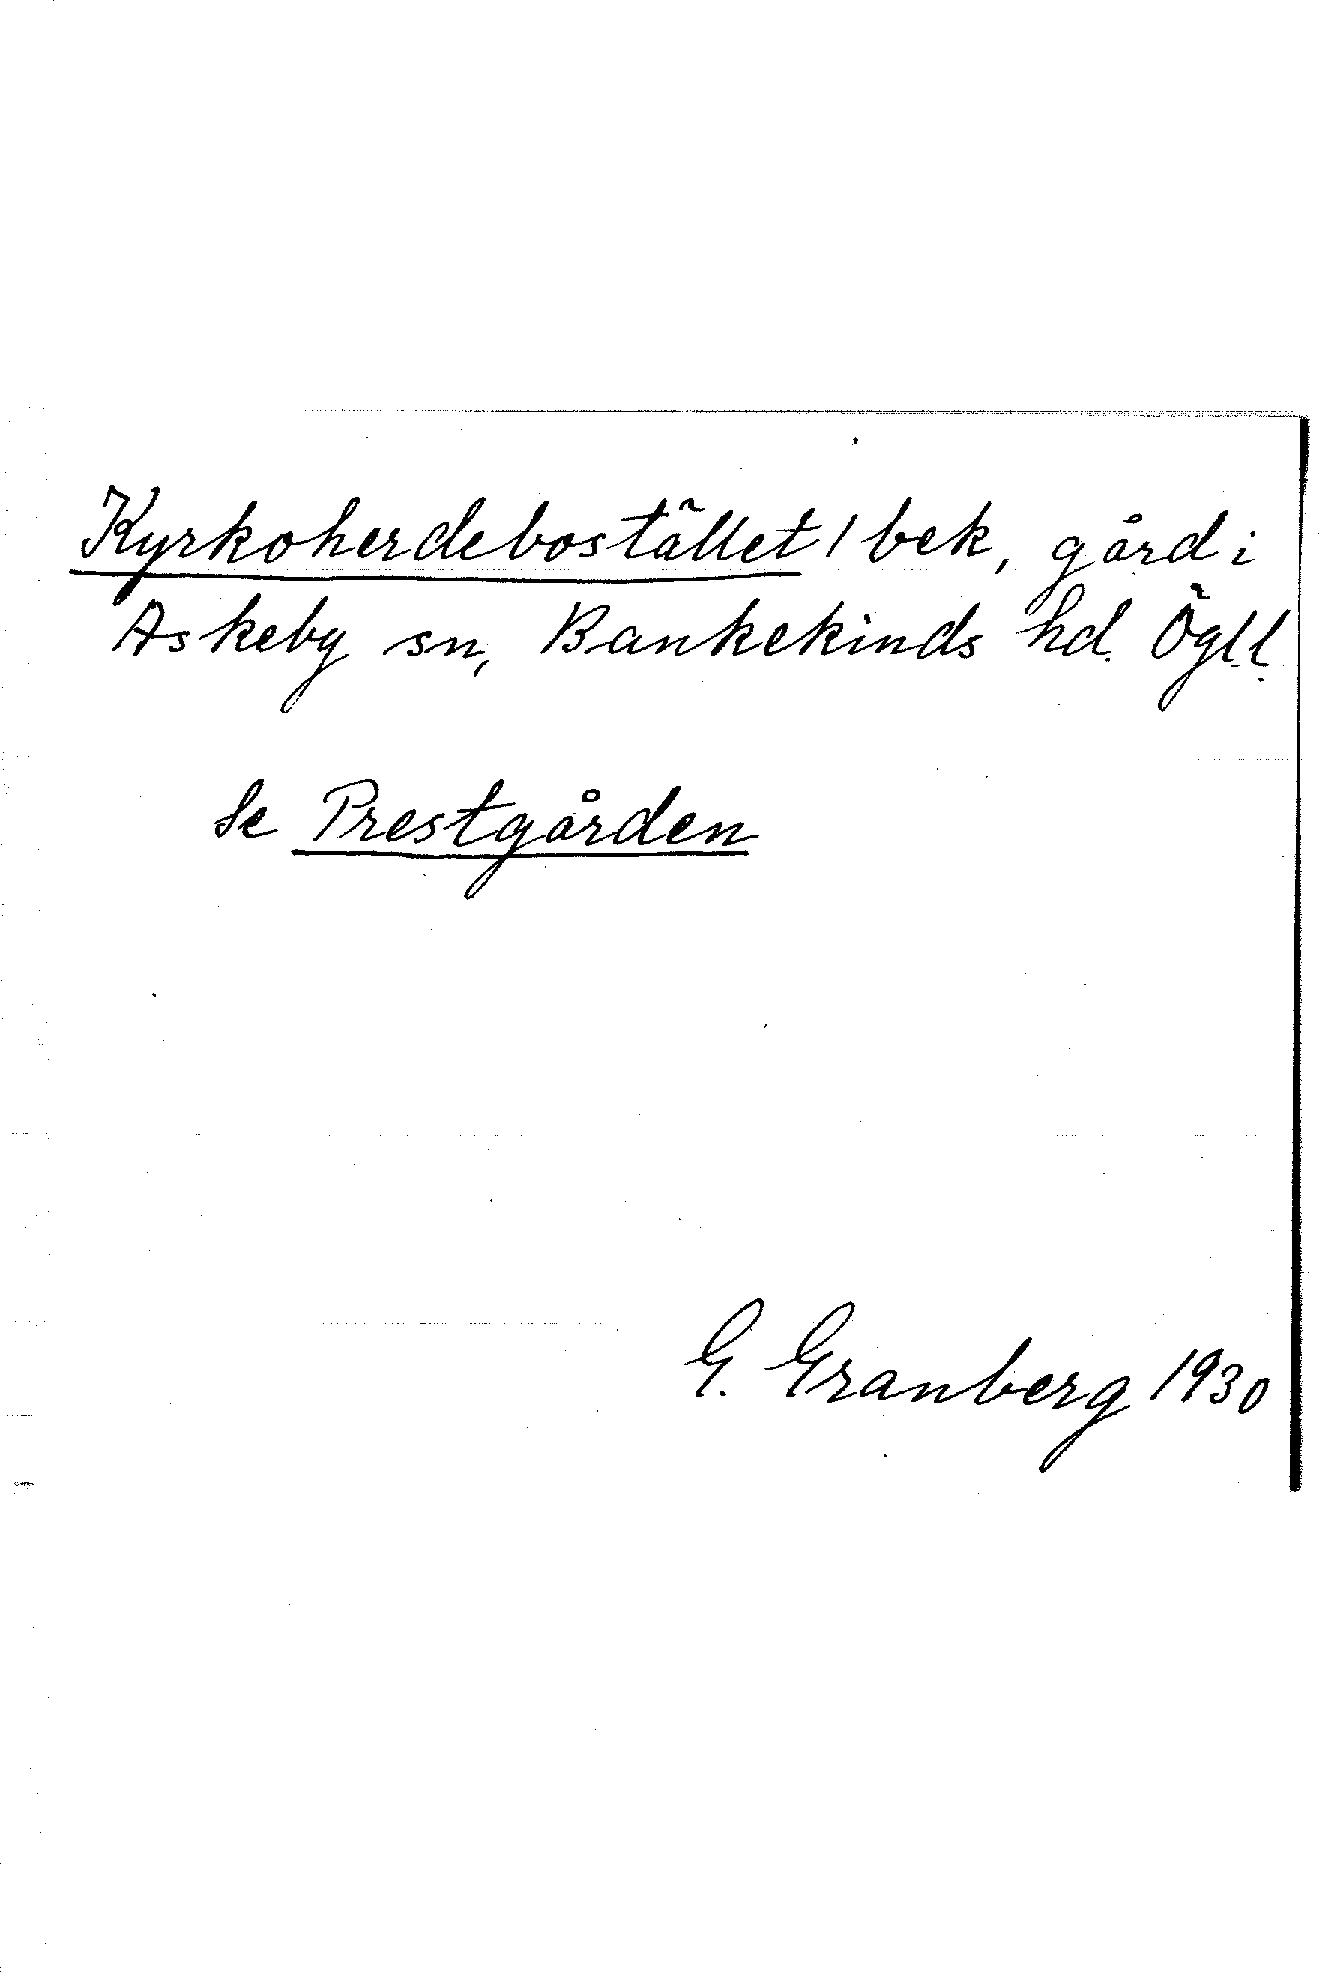 Kyrkoherdebostället / bek, gård i
Askeby sn, Bankekinds hd. Ögll.
Se Prestgården
G. Granberg 1930